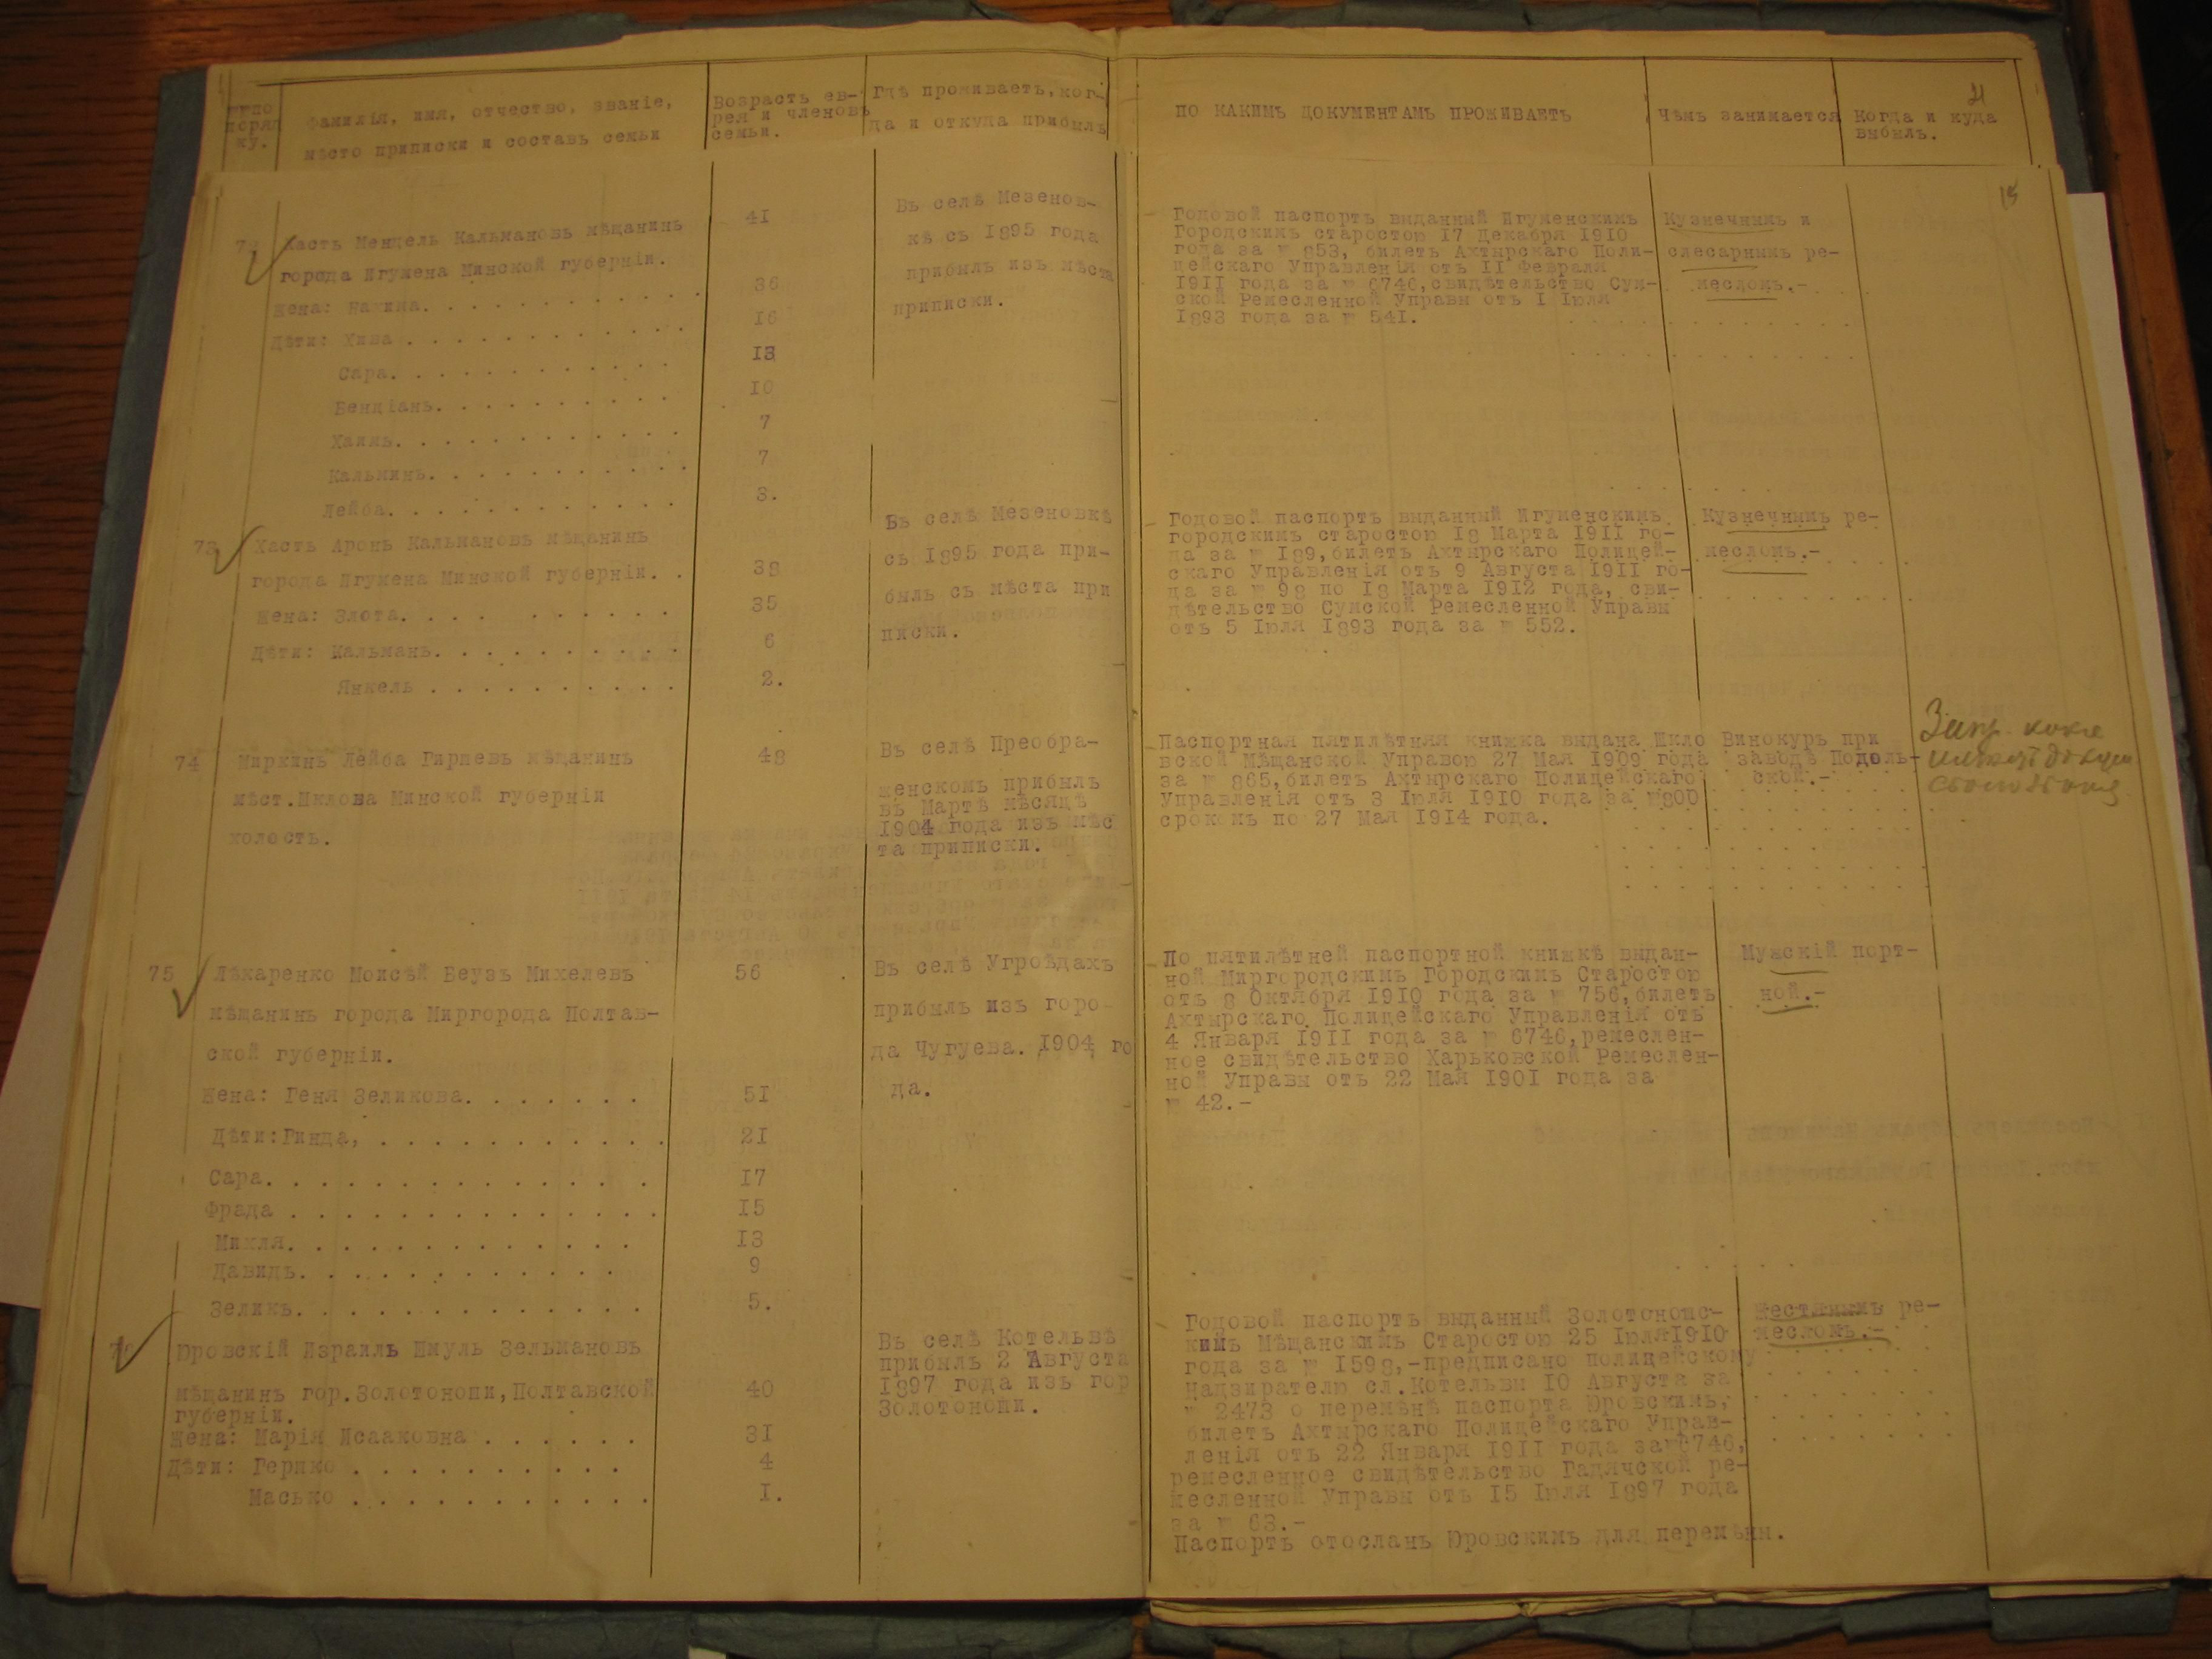 № по
поряд
ку.
Фамилія, имя, отчество, званіе,
мѣсто приписки и составъ семьи
Возрастъ ев-
рея и членовъ
семьи.
Гдѣ проживаетъ, ког-
да и откуда прибылъ
ПО КАКИМЪ ДОКУМЕНТАМЪ ПРОЖИВАЕТЪ
Чѣмъ занимается
Когда и куда
выбылъ.
Хастъ Мендель Кальмановъ мѣщанинъ
города Игумена Минской губерніи.
41
Жена: . . . . . . . . . . . 36
Дѣти: Хива . . . . . . . . . . . 16
Сара. . . . . . . . . . . 13
Бенціанъ. . . . . . . . . . 10
Хаимъ. . . . . . . . . . . 7
Кальминъ. . . . . . . . . . . 7
Лейба. . . . . . . . . . . 3.
Въ селѣ Мезенов-
кѣ съ 1895 года
прибылъ изъ мѣста
приписки.
Годовой паспортъ выданный Игуменскимъ
Городскимъ старостою 17 Декабря 1910
года за № 853, билетъ Ахтырскаго Поли-
цейскаго Управленія отъ 11 Февраля
1911 года за № 6746, свидѣтельство Сум-
ской Ремесленной Управы отъ 1 Іюля
1893 года за № 541.
Кузнечнымъ и
слесарнымъ ре-
месломъ.-
73
Хастъ Аронъ Кальмановъ мѣщанинъ
города Игумена Минской губерніи. . 38
Жена: Злота. . . . . . . . . 35
Дѣти: Кальманъ. . . . . . . . . . 6
Янкель . . . . . . . . . . 2.
Въ селѣ Мезеновкѣ
съ 1895 года при-
былъ съ мѣста при
писки.
Годовой паспортъ выданный Игуменскимъ
городскимъ старостою 18 Марта 1911 го-
да за № 189, билетъ Ахтырскаго Полицей-
скаго Управленія отъ 9 Августа 1911 го-
да за № 98 по 18 Марта 1912 года, сви-
дѣтельство Сумской Ремесленной Управы
отъ 5 Іюля 1893 года за № 552.
Кузнечнымъ ре-
месломъ.-
74
Миркинъ Лейба Гиршевъ мѣщанинъ
мѣст. Шклова Минской губерніи
холостъ.
48
Въ селѣ Преобра-
женскомъ прибылъ
въ Мартѣ мѣсяцѣ
1904 года изъ мѣс
та приписки.
Паспортная пятилѣтняя книжка выдана Шкло
вской Мѣщанской Управою 27 Мая 1909 года
за № 865, билетъ Ахтырскаго Полицейскаго
Управленія отъ 3 Іюля 1910 года за №800
срокомъ по 27 Мая 1914 года.
Винокуръ при
заводѣ Подоль-
ской.-
75
Лѣкаренко Моисѣй Беузъ Михелевъ
мѣщанинъ города Миргорода Полтав-
ской губерніи.
56
Жена: Геня Зеликова. . . . . . . 51
Дѣти:Ринда, . . . . . . . . . . . . 21
Сара. . . . . . . . . . . . . . 17
Фрада . . . . . . . . . . . . . . . 15
Михля. . . . . . . . . . . . . 13
Давидъ. . . . . . . . . . . . 9
Зеликъ. . . . . . . . . . . . . 5.
Въ селѣ Угроѣдахъ
прибылъ изъ горо-
да Чугуева. 1904 го
да.
По пятилѣтней паспортной книжкѣ выдан-
ной Миргородскимъ Городскимъ Старостою
отъ 8 Октября 1910 года за № 756, билетъ
Ахтырскаго Полицейскаго Управленія отъ
4 Января 1911 года за № 6746, ремеслен-
ное свидѣтельство Харьковской Ремеслен-
ной Управы отъ 22 Мая 1901 года за
№ 42.-
Мужскій порт-
ной.-
Юровскій Израиль Шмуль Зельмановъ
мѣщанинъ гор. Золотоноши, Полтавской
губерніи.
40
Жена: Марія Исааковна . . . . . . 31
Дѣти: Гершко . . . . . . . . . . 4
Масько . . . . . . . . . . . . 1.
Въ селѣ Котельвѣ
прибылъ 2 Августа
1897 года изъ гор
Золотоноши.
Годовой паспортъ выданный Золотоношс-
кимъ Мѣщанскимъ Старостою 25 Іюля 1910
года за № 1598,-предписано полицейскому
Надзирателю сл. Котельвы 10 Августа за
№ 2473 о перемѣнѣ паспорта Юровскимъ,
билетъ Ахтырскаго Полицейскаго Управ-
ленія отъ 22 Января 1911 года за №6746,
ремесленное свидѣтельство Гадячской ре-
месленной Управы отъ 15 Іюля 1897 года
за № 63.-
Паспортъ отосланъ Юровскимъ для перемѣны.
Жестянымъ ре-
месломъ.-